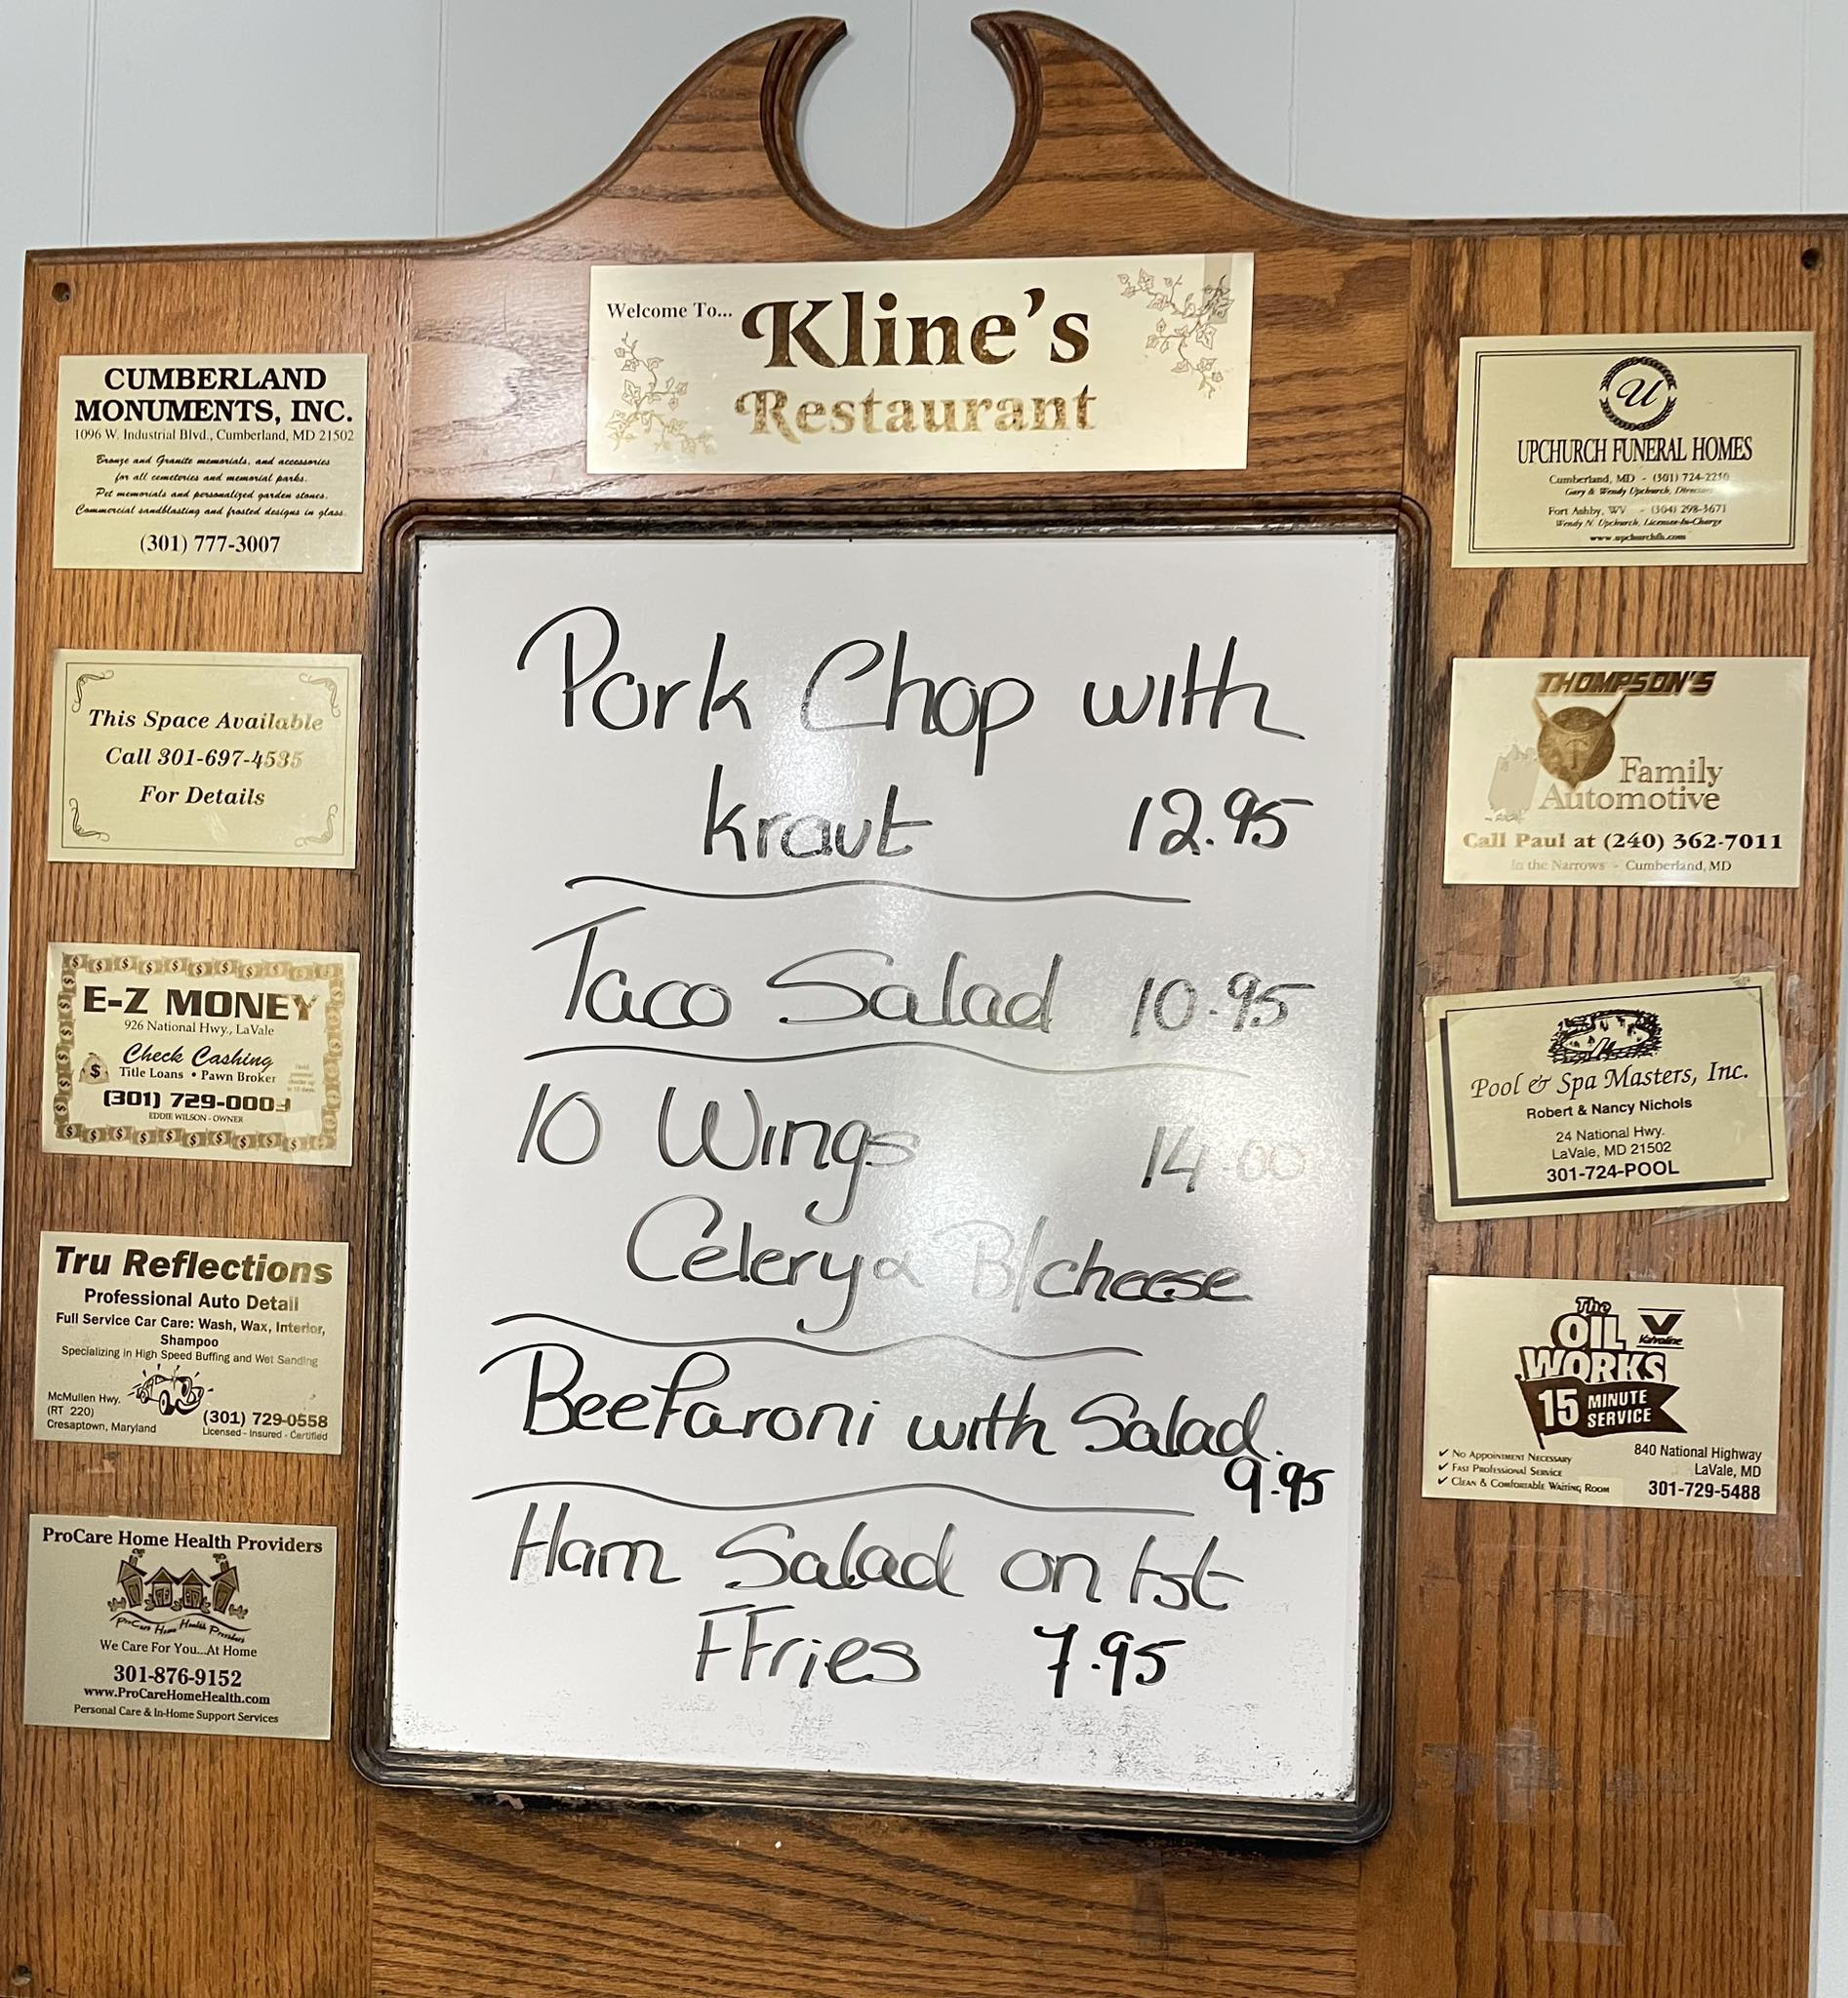 Welcome To... Kline's
Restaurant
CUMBERLAND
MONUMENTS, INC.
1096 W. Industrial Blvd., Cumberland, MD 21502
Bronze and Granite memorials, and accessories
for all cemeteries and memorial parks.
Pet memorials and personalized garden stones.
Commercial sandblasting and frosted designs in glass.
(301) 777-3007
This Space Available
Call 301-697-4535
For Details
E-Z MONEY
926 National Hwy., LaVale
Check Cashing
Title Loans • Pawn Broker
(301) 729-0003
EDDIE WILSON - OWNER
Tru Reflections
Professional Auto Detail
Full Service Car Care: Wash, Wax, Interior,
Shampoo
Specializing in High Speed Buffing and Wet Sanding
McMullen Hwy.
(RT 220)
Cresaptown, Maryland
(301) 729-0558
Licensed - Insured - Certified
ProCare Home Health Providers
ProCare Home Health Providers
We Care For You...At Home
301-876-9152
www.ProCareHomeHealth.com
Personal Care & In-Home Support Services
Pork Chop with
kraut 12.95
Taco Salad 10.95
10 Wings 14.00
Celery & Bl cheese
Beefaroni with Salad.
9.95
Ham Salad on tst
FFries 7.95
U
UPCHURCH FUNERAL HOMES
Cumberland, MD - (301) 724-2210
Gary & Wendy Upchurch, Directors
Fort Ashby, WV - (304) 298-3671
Wendy N. Upchurch, Licensee-In-Charge
www.upchurchfh.com
THOMPSON'S
T
Family
Automotive
Call Paul at (240) 362-7011
In the Narrows - Cumberland, MD
Pool & Spa Masters, Inc.
Robert & Nancy Nichols
24 National Hwy.
LaVale, MD 21502
301-724-POOL
The
OIL
WORKS
Valvoline
15 MINUTE
SERVICE
✓ No Appointment Necessary
✓ Fast Professional Service
✓ Clean & Comfortable Waiting Room
840 National Highway
LaVale, MD
301-729-5488